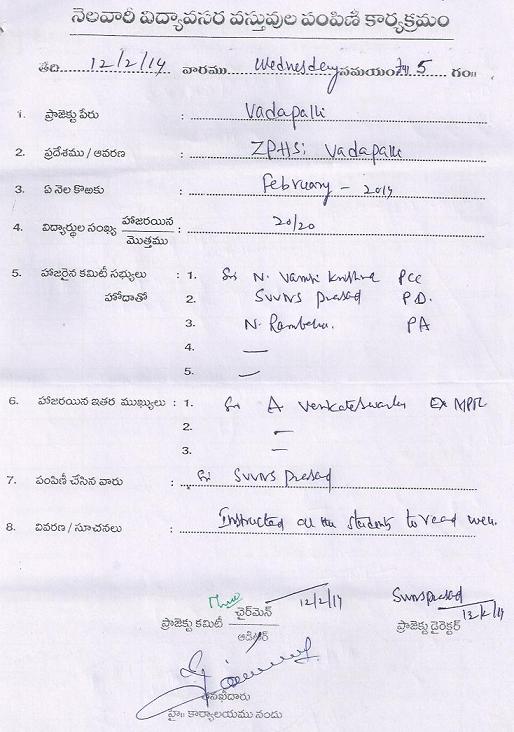 నెలవారీ విద్యావసర వస్తువుల పంపిణి కార్యక్రమం
తేది 12/2/14 వారము Wednesday సమయం 5 గం॥
1. ప్రాజెక్టు పేరు : Vadapalli
2. ప్రదేశము / ఆవరణ : ZPHS; Vadapalli
3. ఏ నెల కొఱకు : February - 2014
4. విద్యార్థుల సంఖ్య హాజరయిన / మొత్తము : 20/20
5. హాజరైన కమిటీ సభ్యులు : 1. Sri N. Vamsi Krishna PCC
హోదాతో 2. SVVNS Prasad P.D.
3. N. Rambabu. PA
4. —
5. —
6. హాజరయిన ఇతర ముఖ్యులు : 1. Sri A Venkateswarlu Ex
2. —
3. —
7. పంపిణీ చేసిన వారు : Sri SVVNS Prasad
8. వివరణ / సూచనలు : Instructed all the students to read well.
12/2/14
ప్రాజెక్టు కమిటీ చైర్‌మెన్ / ఆడిటర్
Svvnsprasad
12/2/14
ప్రాజెక్టు డైరెక్టర్
హై॥ కార్యాలయము నందు